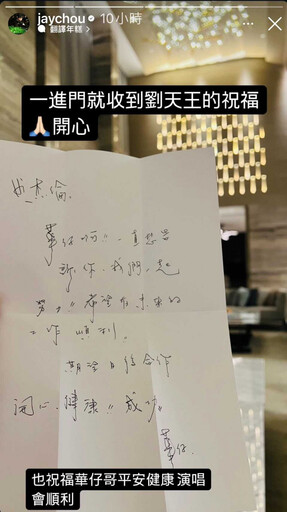 jaychou 10 小時
翻譯年糕
一進門就收到劉天王的祝福
🙏🏻開心
杰倫
華仔 一直
我們一起
努力!! 希望 未來的
工作順利,
合作
開心, 健康!! 成功。
華仔
也祝福華仔哥平安健康 演唱
會順利